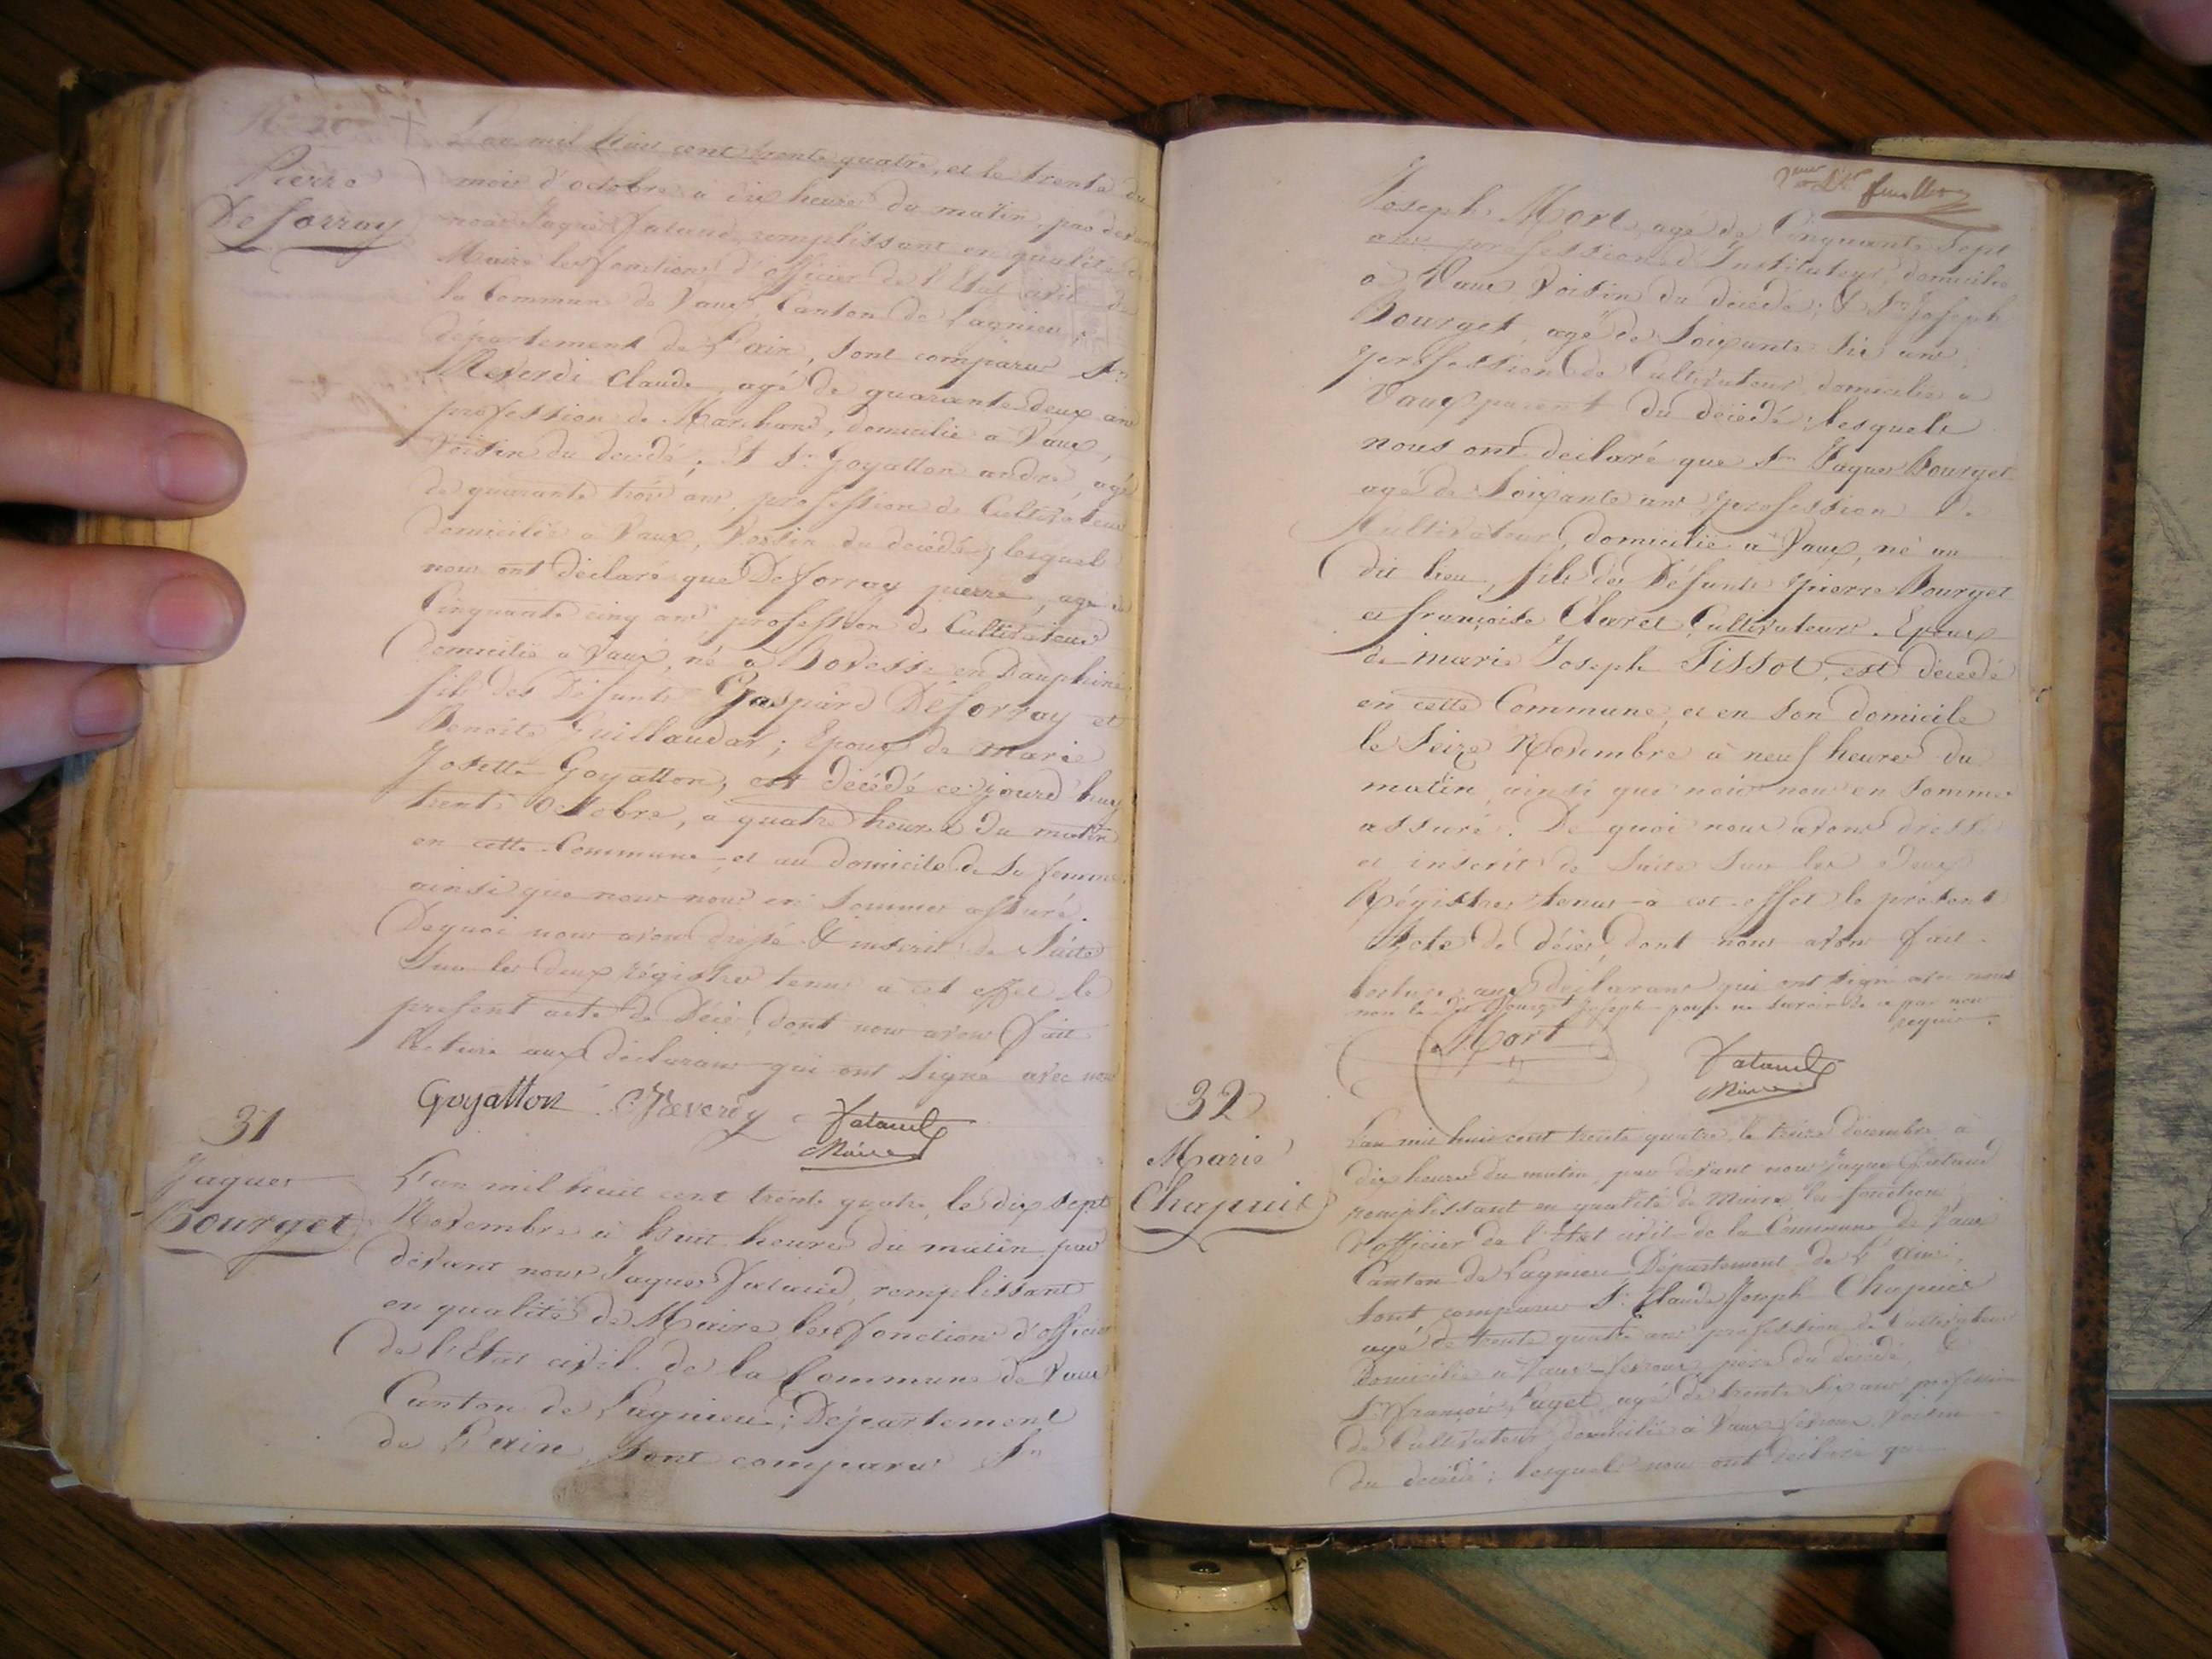 Pierre
Desorray
L'an mil huit cent trente quatre, et le trente du
mois d'octobre à dix heures du matin, par devant
nous Jaques Falaud, remplissant en qualité de
Maire les fonctions d'officier de l'Etat civil de
la Commune de Vaux, Canton de Lagnieu,
département de L'ain, sont comparus Sr.
Reverdi Claude, agé de quarante deux ans
profession de Marchand, domicilié à Vaux,
Voisin du décédé; Et Sr. Goyatton andré, agé
de quarante trois ans, profession de Cultivateur
domicilié a Vaux, Voisin du décédé; lesquels
nous ont déclaré que Desorray pierre, agé de
Cinquante cinq ans, profession de Cultivateur
domicilié à Vaux, né à en Dauphiné
fils des Défunts Gaspard Desorray et
Benoite Guillaudat; Epoux de Marie
Josette Goyatton, est décédé ce jourd'huy
trente Octobre, à quatre heures du matin
en cette Commune, et au domicile de sa femme
ainsi que nous nous en sommes assuré.
De quoi nous avons dressé & inscrit de suite
sur les deux régistres tenus à cet effet le
present acte de Décès, dont nous avons fait
lecture aux déclarans qui ont signé avec nous
Goyatton C. Reverdy Falaud
Maire
31
Jaques
Bourget
L'an mil huit cent trente quatre, le dix sept
Novembre à huit heures du matin par
devant nous Jaques Falaud, remplissant
en qualité de Maire les fonctions d'officier
de l'Etat civil de la Commune de Vaux
Canton de Lagnieu; Département
de L'ain, sont comparus Sr
Joseph Mort, agé de Cinquante Sept
ans profession d'Instituteur, domicilié
à Vaux Voisin du décédé; & Sr. Joseph
Bourget, agé de Soixante six ans,
profession de Cultivateur domicilié a
Vaux parent du décédé; lesquels
nous ont déclaré que Sr. Jaques Bourget
agé de Soixante ans profession de
Cultivateur, domicilié à Vaux, né au
dit lieu, fils des Defunts pierre Bourget
et françoise Claret Cultivateurs. Epoux
de marie Joseph Tissot, est décédé
en cette Commune, et en son domicile
le Seize Novembre à neuf heures du
matin, ainsi que nous nous en sommes
assuré. De quoi nous avons dressé
et inscrit de Suite sur les deux
Régistres tenus à cet effet le présent
Acte de décès, dont nous avons fait
lecture aux déclarans qui ont signé avec nous
non le dit Bourget Joseph pour ne savoir de ce par nous
requis.
Mort Falaud
Maire
32
Marie
Chapuis
L'an mil huit cent trente quatre, le treize décembre à
dix heures du matin, par devant nous Jaques Falaud
remplissant en qualité de Maire les fonctions
d'officier de l'Etat civil de la Commune de Vaux
Canton de Lagnieu Département de L'ain,
sont comparus Sr. Claude Joseph Chapuis
agé de trente quatre ans profession de Cultivateur
Domicilié à Vaux-fevroux, père du décédé, &
Sr. françois Paget, agé de trente six ans profession
de Cultivateur domicilié à Vaux fevroux, Voisin
du décédé; lesquels nous ont déclaré que